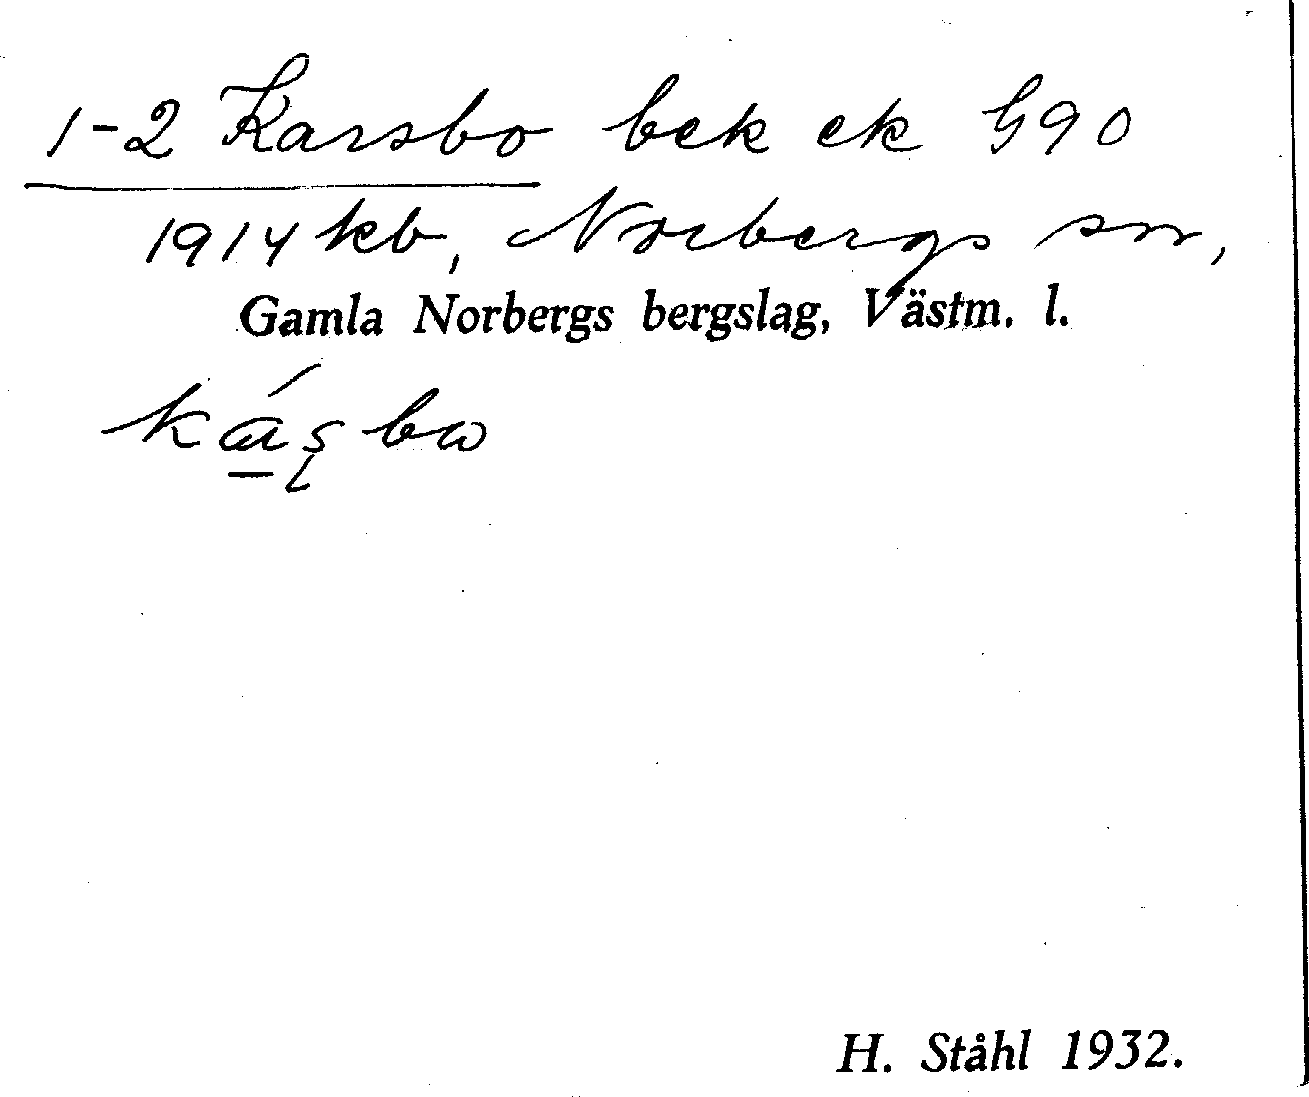 1-2 Karsbo bek ek G90
1914 kb, Norbergs sn,
Gamla Norbergs bergslag, Västm. l.
ká̱ʂbω
H. Ståhl 1932.